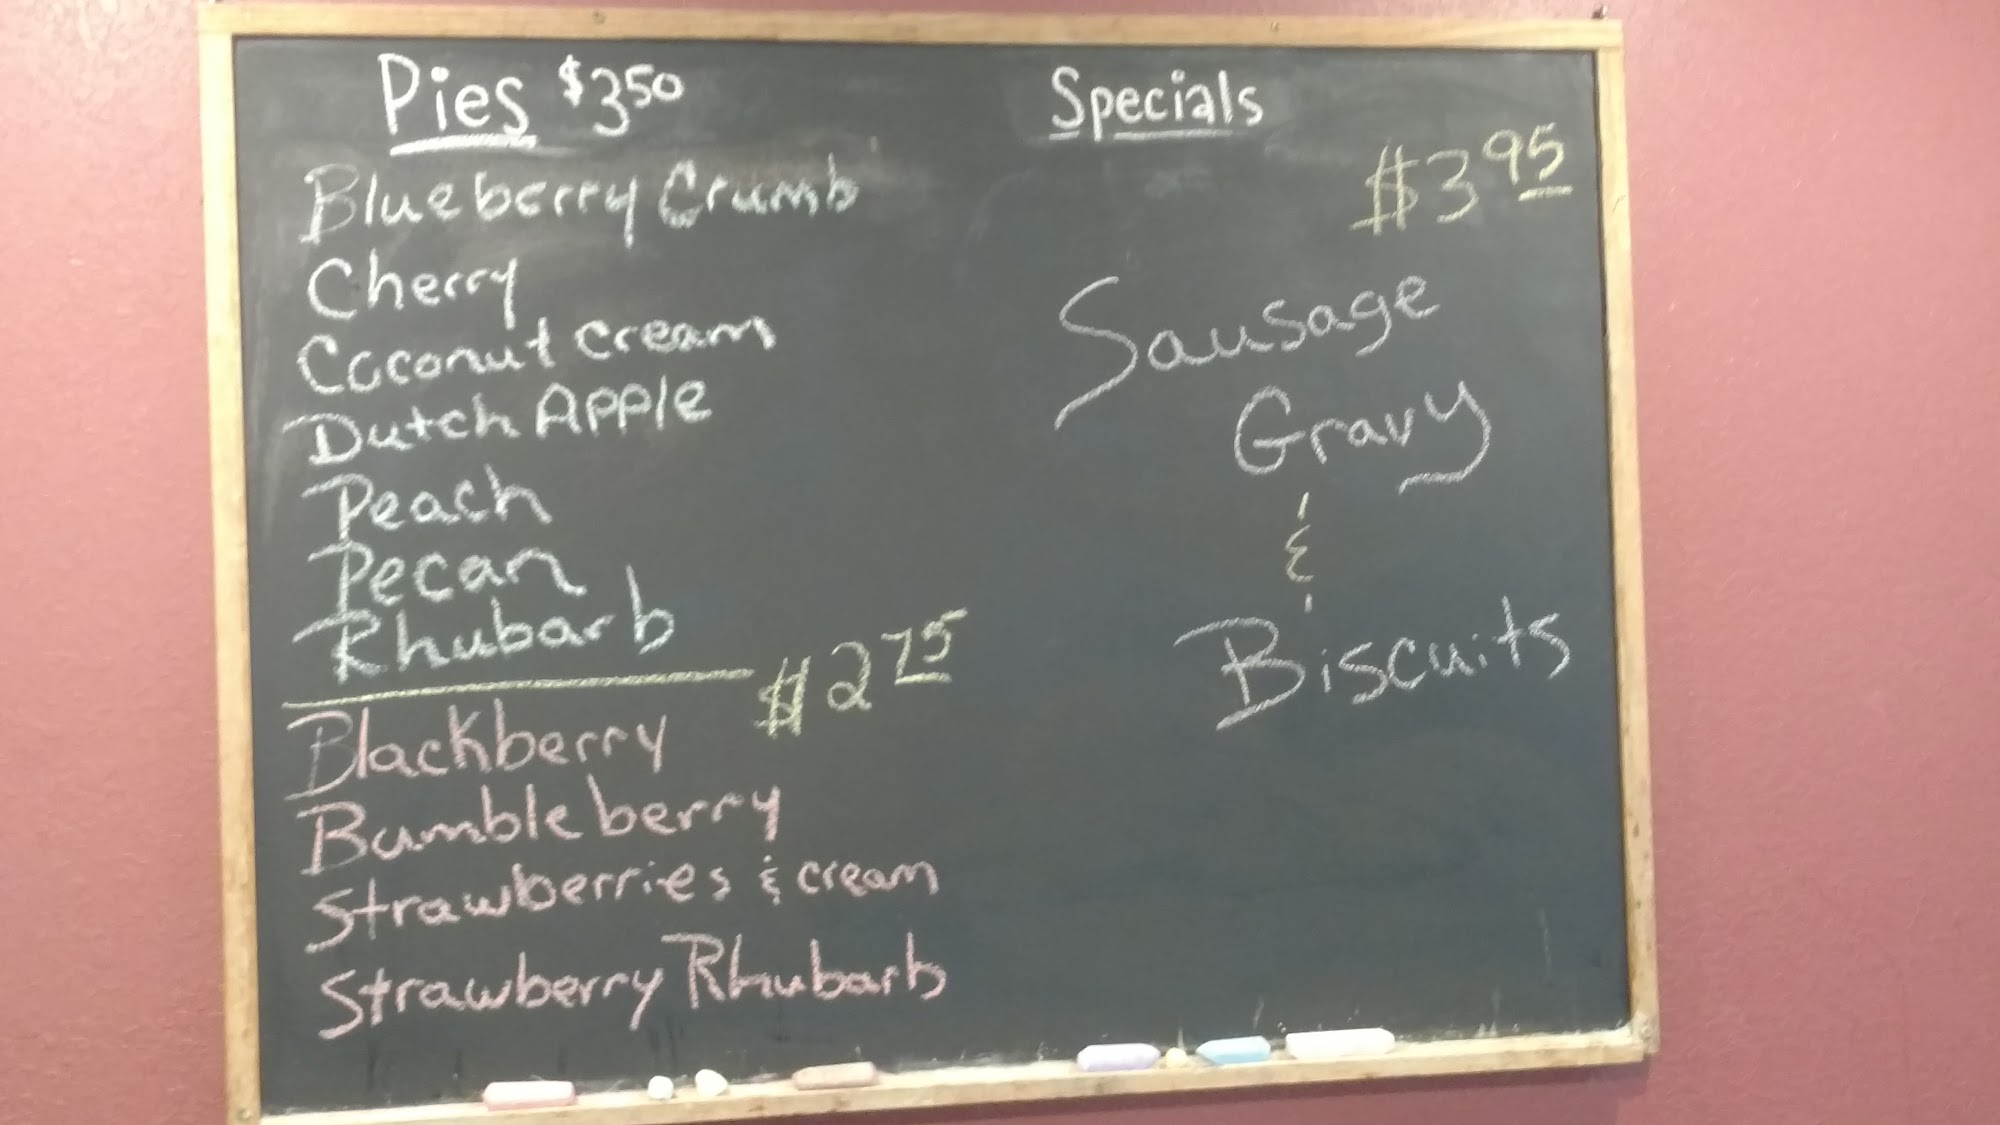 Pies $3.50
Blueberry Crumb
Cherry
Coconut cream
Dutch Apple
Peach
Pecan
Rhubarb
$2.75
Blackberry
Bumbleberry
Strawberries & cream
Strawberry Rhubarb
Specials
$3.95
Sausage
Gravy
&
Biscuits